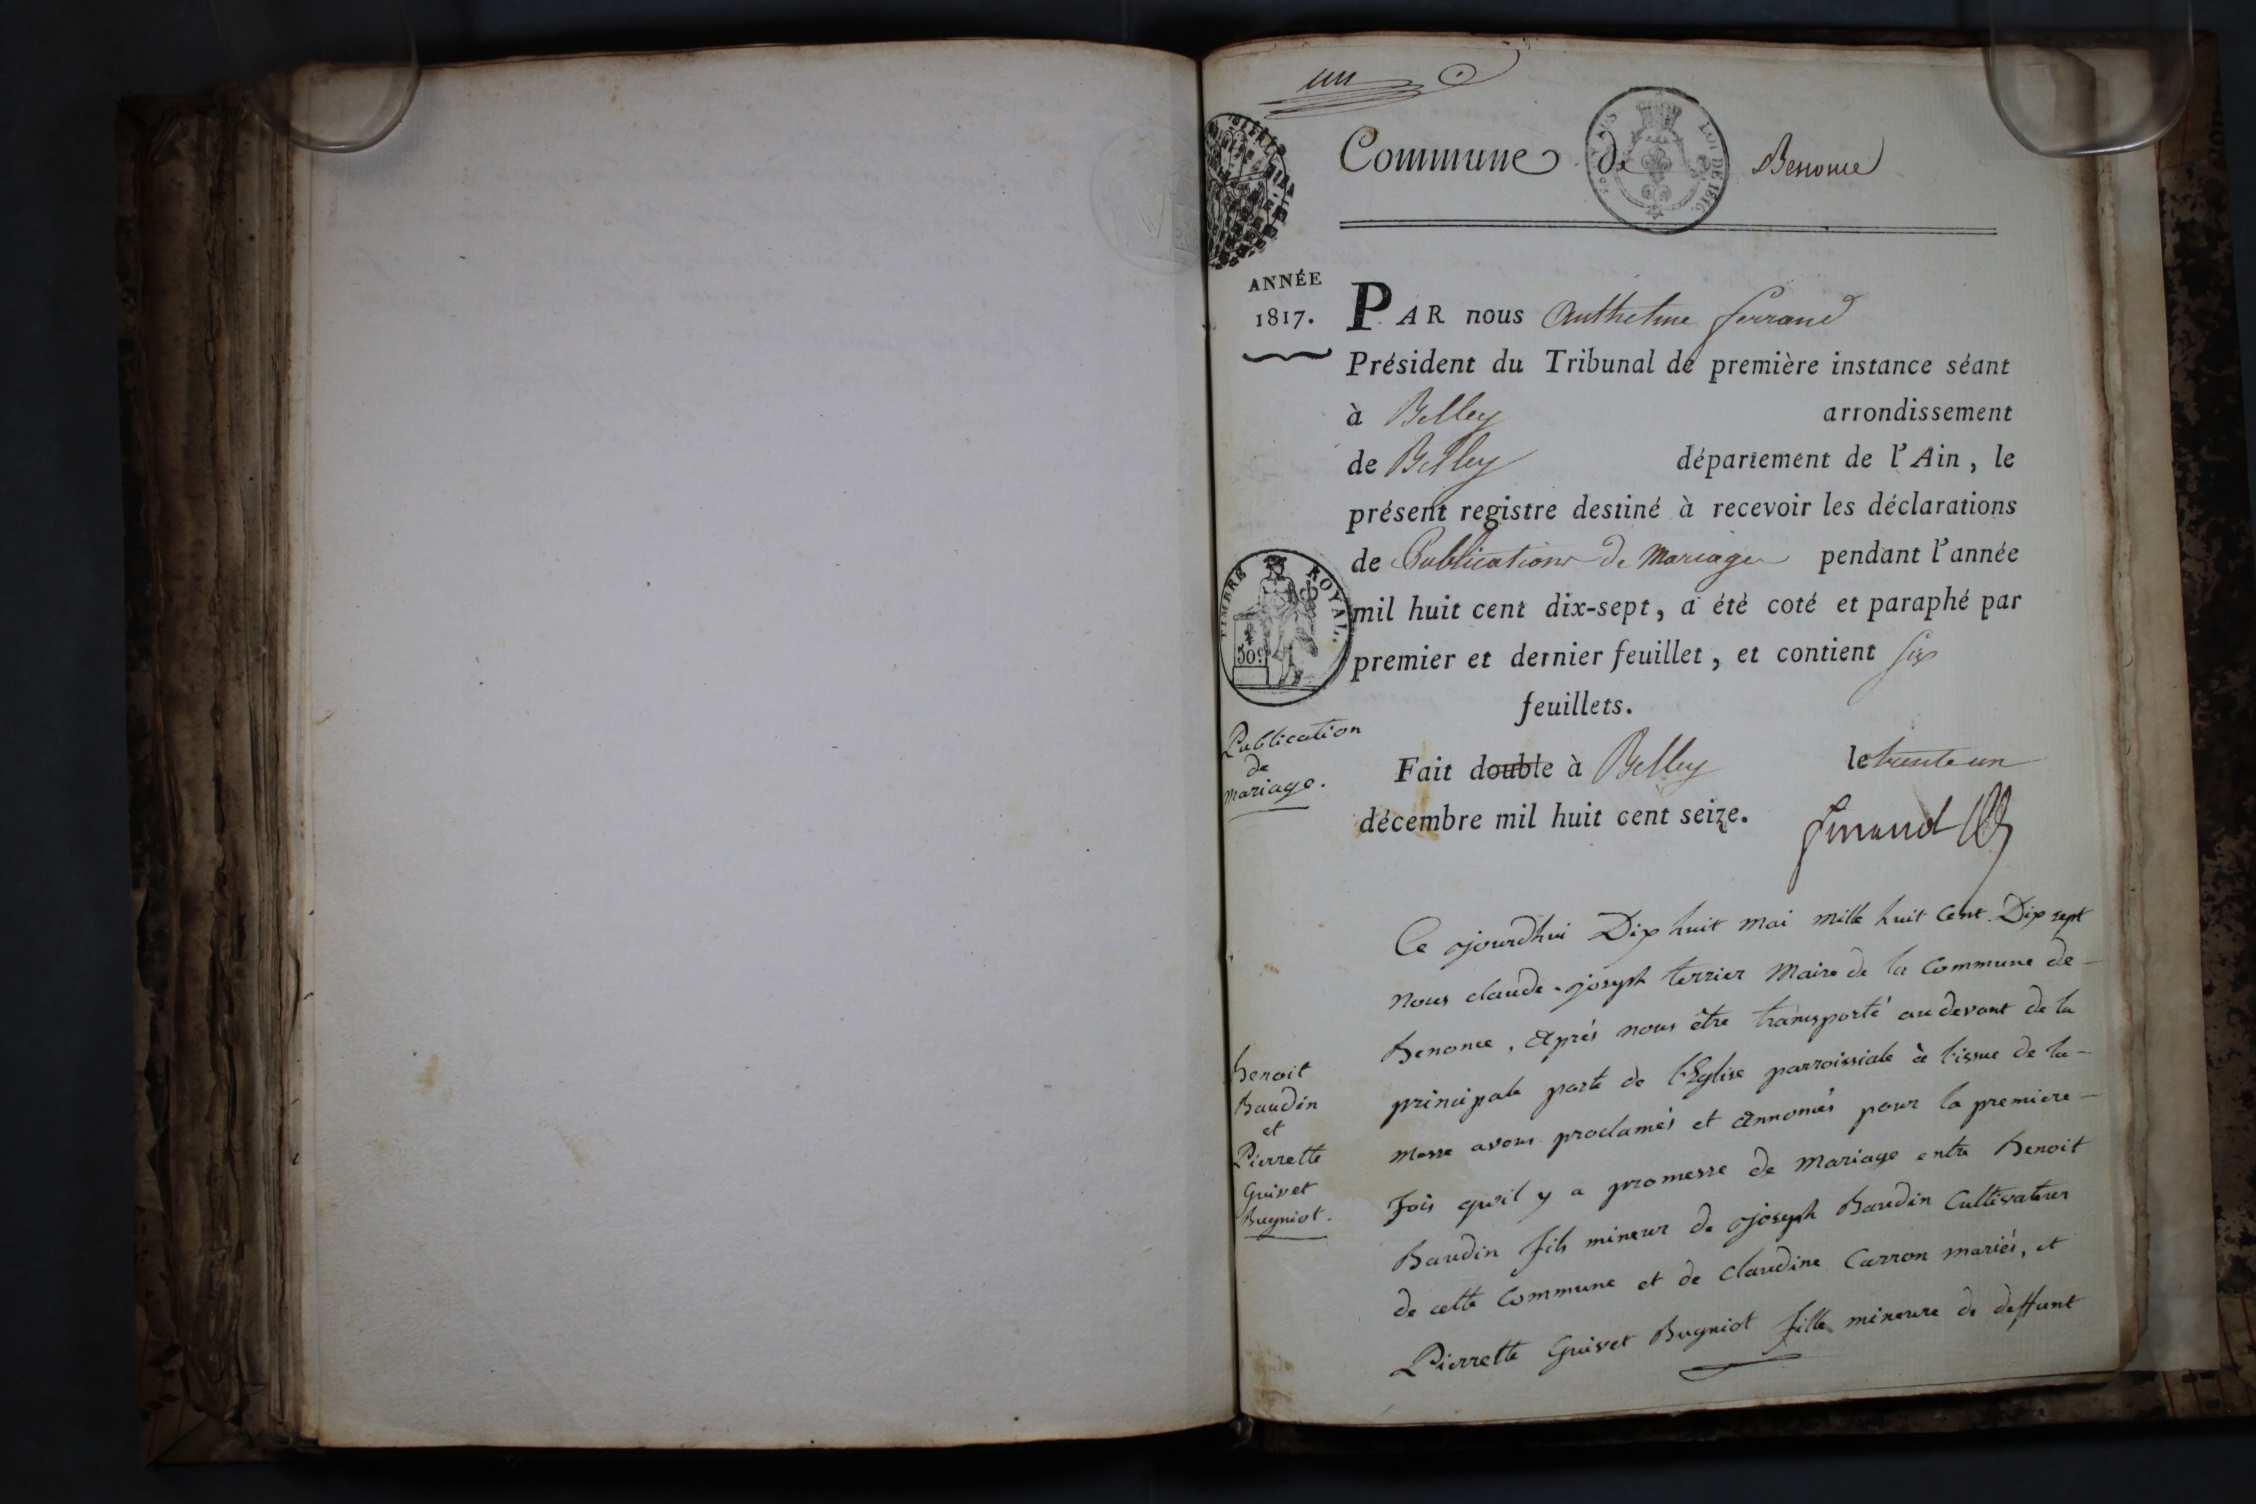 un
Commune de Benonce
ANNÉE
1817.
PAR nous Anthelme ferrand
Président du Tribunal de première instance séant
à Belley arrondissement
de Belley département de l'Ain, le
présent registre destiné à recevoir les déclarations
de Publications de Mariages pendant l'année
mil huit cent dix-sept, a été coté et paraphé par
premier et dernier feuillet, et contient six
feuillets.
Fait double à Belley le trente un
décembre mil huit cent seize.
ferrand
TIMBRE ROYAL.
50c
LOI DE 1816.
Publication
de
mariage.
Ce ojourdhui Dix huit mai mille huit Cent Dix sept
nous claude-joseph terrier Maire de la Commune de
Benonce, après nous être transporté audevant de la
principale porte de l'Eglise parroissiale à l'issue de la
messe avons proclamés et annoncés pour la premiere
fois qu'il y a promesse de mariage entre benoit
Baudin fils mineur de joseph Baudin Cultivateur
de cette Commune et de claudine Carron mariés, et
Pierrette Guivet Bugniot fille mineure de deffunt
benoit
Baudin
et
Pierrette
Guivet
Bugniot.